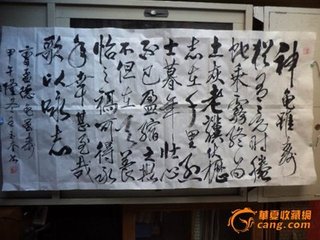 神龟雖寿
猶有竟时騰
蛇乘霧终为
土灰老驥伏櫪
志在千里烈
士暮年壮心
不已盈缩之期
不但在天養
怡之福可得永
年幸甚至哉
歌以咏志
曹孟德龟虽寿
甲午
華夏收藏網
cang.com